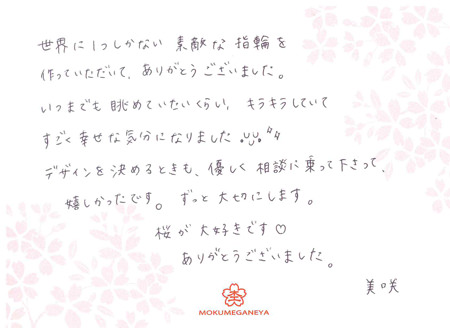 世界に1つしかない 素敵な 指輪を
作っていただいて、ありがとうございました。
いつまでも 眺めていたいくらい、キラキラしていて
すごく 幸せな 気分に なりました
デザインを 決めるときも、優しく 相談に 乗って下さって、
嬉しかったです。ずっと 大切にします。
桜が 大好きです♡
ありがとうございました。
美咲
MOKUMEGANEYA